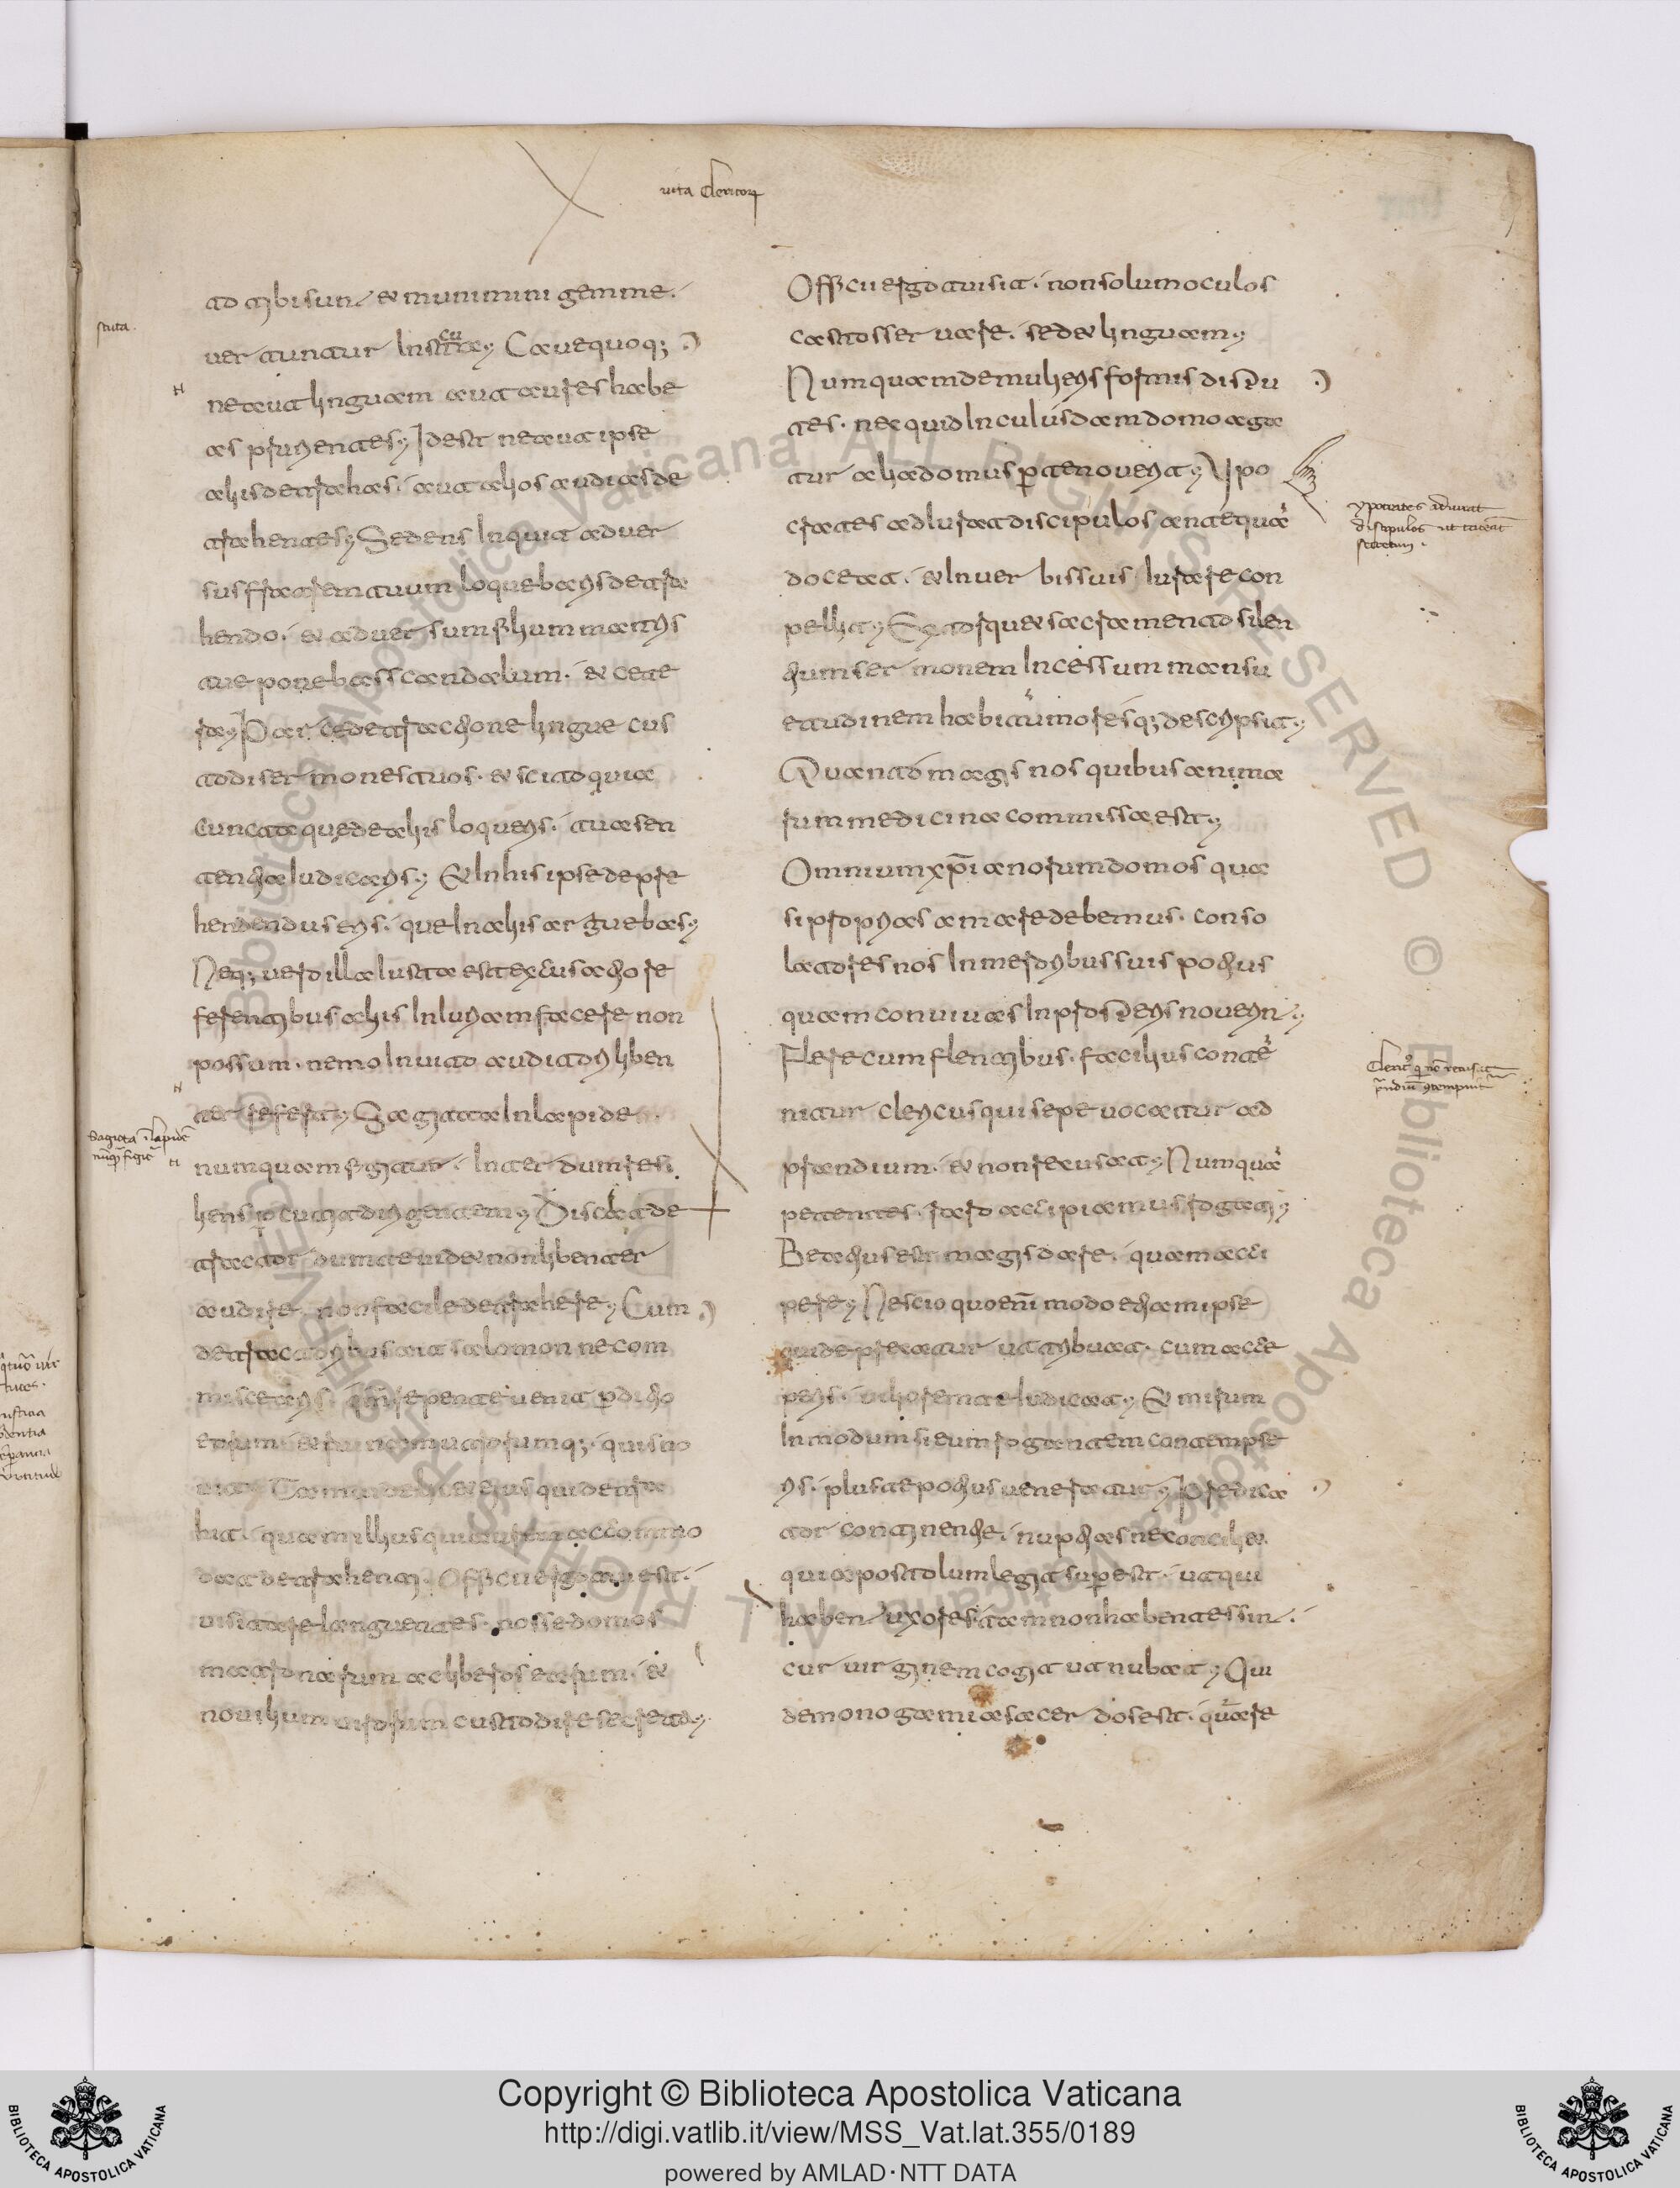 vita clericorum
scuta
to tibi sunt et munimini gemme.
vertuntur in scutra. Cave quoq;
ne aut linguam aut aures habe
as prurientes. Idest ne aut ipse
aliis detrahas. aut alios audias de
trahentes. Sedens inquit adver
sus fratrem tuum loquebaris detra
hendo. et adversum filium matris
tue ponebas scandalum. et cete
ra. Parce detractione lingue cus
todi sermones tuos. et scito quia
cuncta que de aliis loqueris. tua sen
tentia iudicaris. Et in his ipse depre
henderis eris. que in aliis arguebas.
Neq; vero illa iusta est excusatio re
ferentibus aliis iniuriam facere non
possum. nemo invito auditori liben
ter refert. Sagitta in lapide
numquam figitur. Interdum resi
liens percutit dirigentem. Discat de
tractor dum te videt non libenter
audire. non facile detrahere. Cum
detractoribus ait salomon ne com
miscearis. quoniam repente veniet perditio
eorum. et ruinam utrorumq; quis no
vit. Tam videlicet eius qui detra
hit. quam illius qui aurem accommo
dat detrahenti. Officii ergo tui est.
visitare languentes. nosse domos
matronarum ac liberos earum. et
nobilium virorum custodire secreta.
Sagitta in lapide
nunquam figitur
Officii ergo tui sit. non solum oculos
castos servare. sed et linguam.
Numquam de mulieris formis dispu
tes. nec quid in cuiusdam domo aga
tur alia domus per te noverit. Ypo
crates adiurat discipulos antequam
doceat. et in verba sua iurare con
pellit. Extorquet sacramento silen
tium sermonem incessum mansu
etudinem habitum moresq; descripsit.
Quanto magis nos quibus anima
rum medicina commissa est.
Omnium xpianorum domos qua
si proprias amare debemus. conso
latores nos in meroribus suis potius
quam convivas in prosperis noverint.
Flere cum flentibus. facilius conte
nitur clericus qui sepe vocatur ad
prandium. et non recusat. Numquam
petentes. raro accipiamus rogati.
Beatius est magis dare. quam acci
pere. Nescio quo enim modo etiam ipse
qui deprecatur ut tribuat. cum acce
peris. viliorem te iudicat. Et mirum
in modum si eum rogantem contempse
ris. plus te potius veneratur. Predica
tor continentie. nuptias ne conciliet.
qui apostolum legit superest. ut qui
habent uxores ita tam non habentes sint.
cur virginem cogit ut nubat. Qui
de monogamia sacerdos est. quare
Copyright © Biblioteca Apostolica Vaticana
http://digi.vatlib.it/view/MSS_Vat.lat.355/0189
powered by AMLAD·NTT DATA
BIBLIOTECA APOSTOLICA VATICANA
BIBLIOTECA APOSTOLICA VATICANA